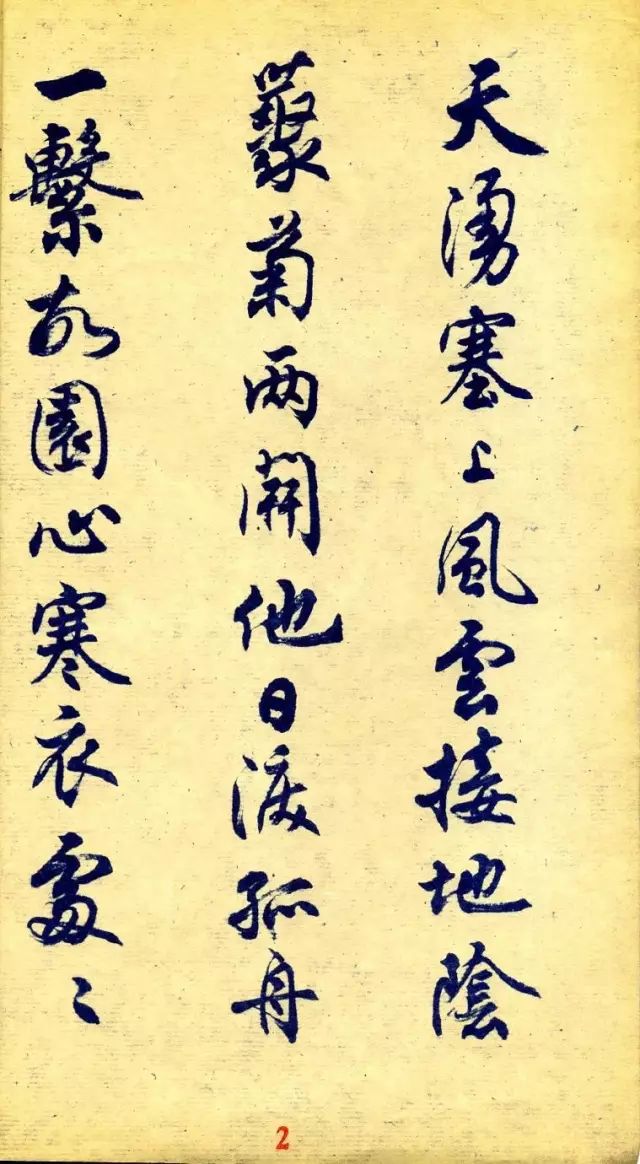 天湧塞上風雲接地陰
藂菊两開他日淚孤舟
一繫故園心寒衣處〻
2